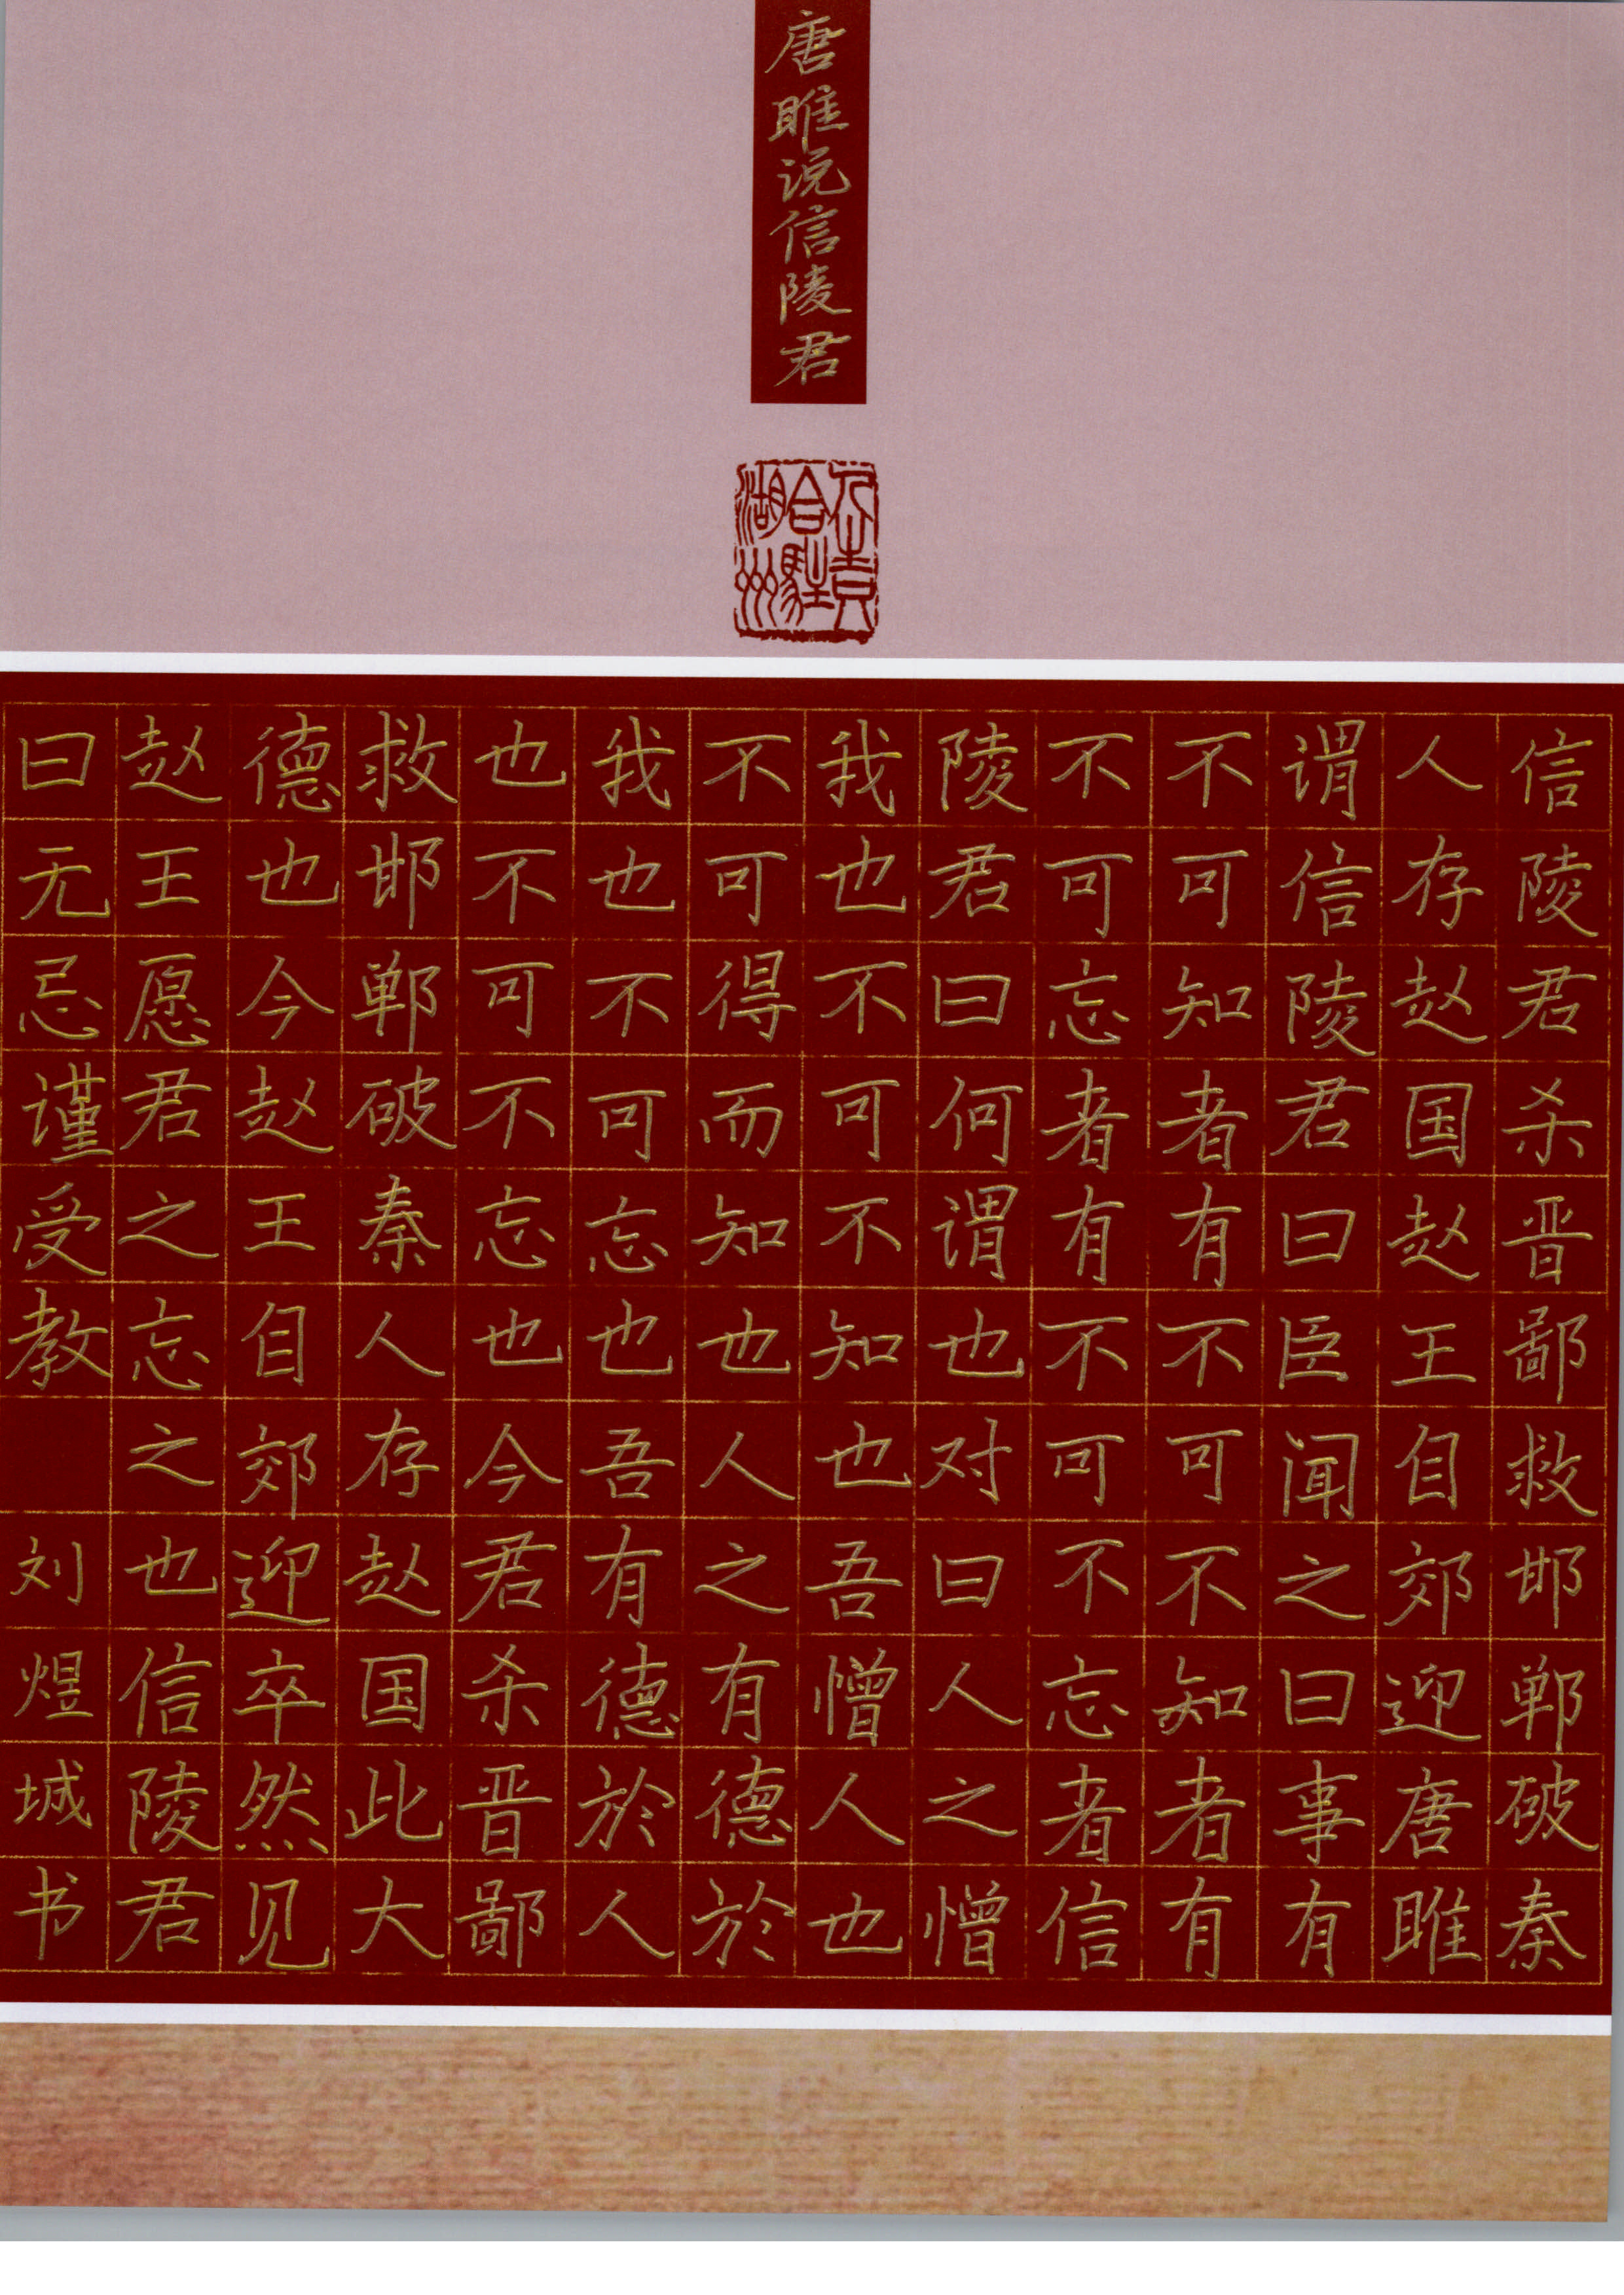 唐雎说信陵君
信陵君杀晋鄙救邯郸破秦
人存赵国赵王自郊迎唐雎
谓信陵君曰臣闻之曰事有
不可知者有不可不知者有
不可忘者有不可不忘者信
陵君曰何谓也对曰人之憎
我也不可不知也吾憎人也
不可得而知也人之有德於
我也不可忘也吾有德於人
也不可不忘也今君杀晋鄙
救邯郸破秦人存赵国此大
德也今赵王自郊迎卒然见
赵王愿君之忘之也信陵君
曰无忌谨受教 刘煜城书